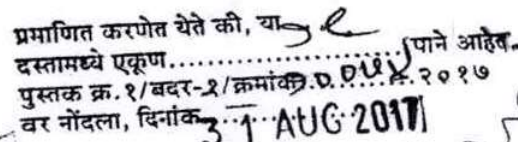 प्रमाणित करणेत येते की, या
दस्तामध्ये एकूण..................पाने आहेत.
पुस्तक क्र. १/बदर-१/क्रमांक............२०१७
वर नोंदला, दिनांक 31 AUG 2017